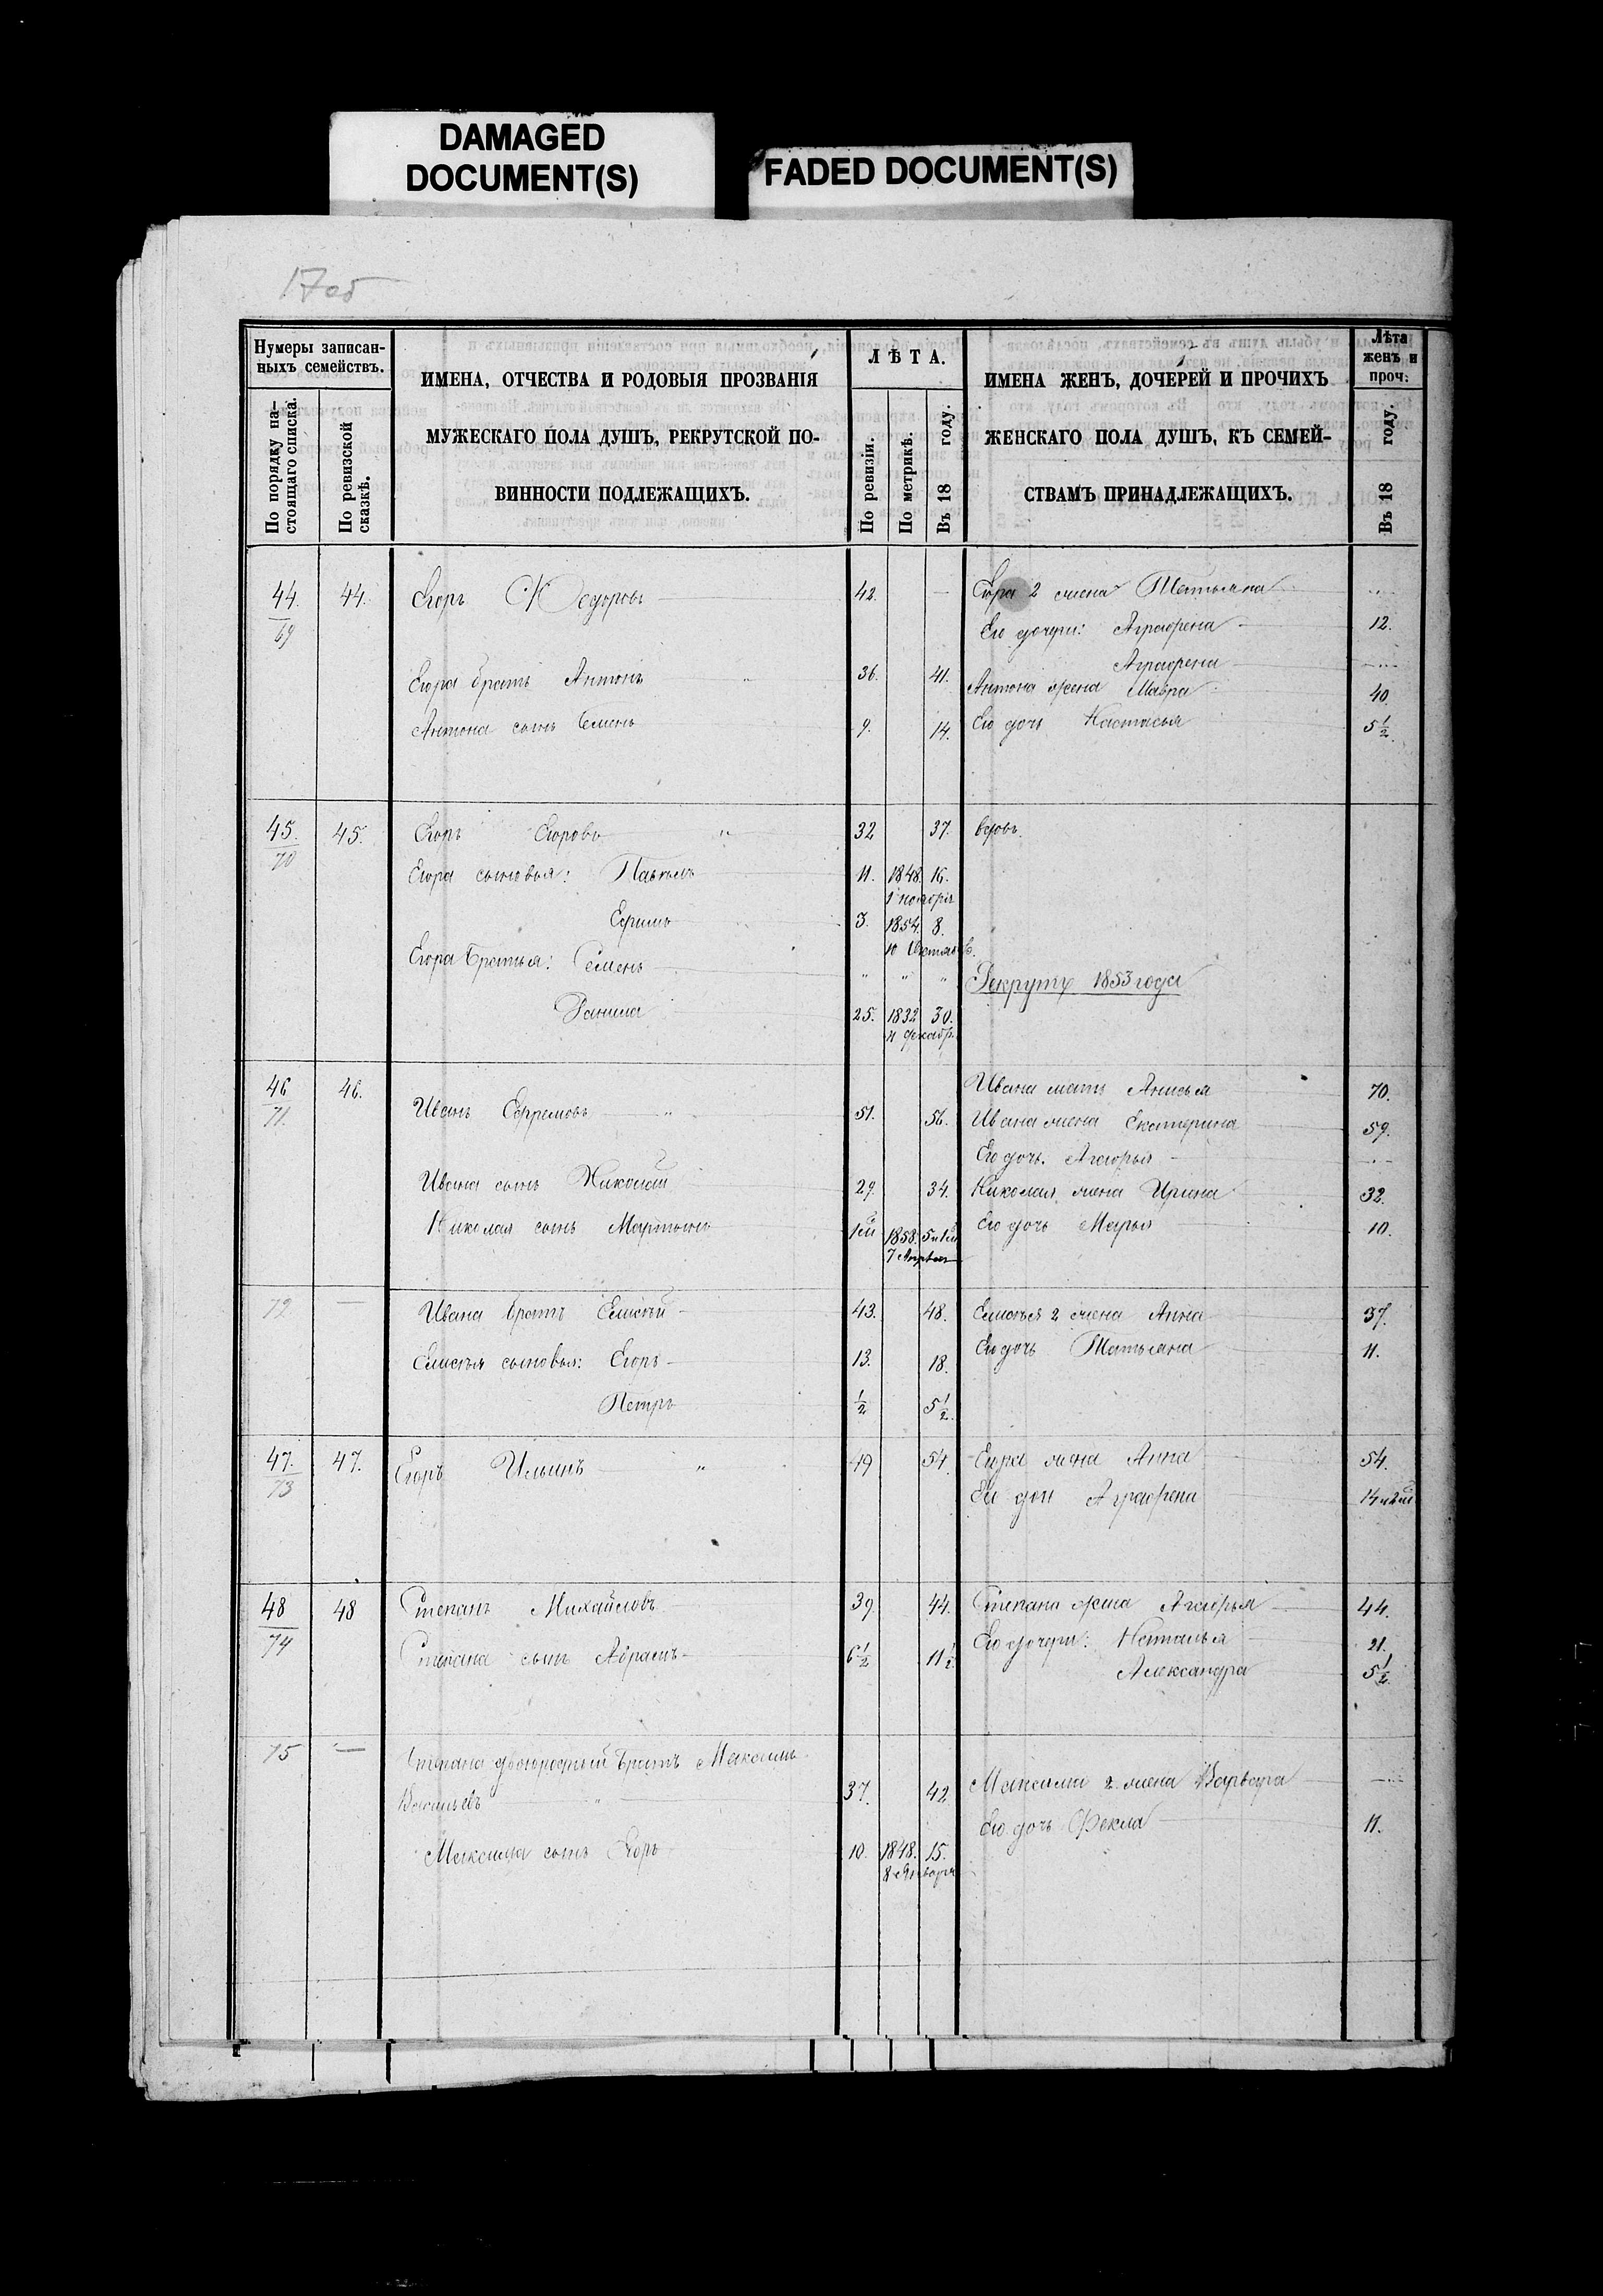 DAMAGED
DOCUMENT(S)
FADED DOCUMENT(S)
17об
Нумеры записан-
ныхъ семействъ.
По порядку на-
стоящаго списка.
По ревизской
сказкѣ.
ИМЕНА, ОТЧЕСТВА И РОДОВЫЯ ПРОЗВАНІЯ
МУЖЕСКАГО ПОЛА ДУШЪ, РЕКРУТСКОЙ ПО-
ВИННОСТИ ПОДЛЕЖАЩИХЪ.
ЛѢТА.
По ревизіи.
По метрикѣ.
Въ 18 году.
ИМЕНА ЖЕНЪ, ДОЧЕРЕЙ И ПРОЧИХЪ
ЖЕНСКАГО ПОЛА ДУШЪ, КЪ СЕМЕЙ-
СТВАМЪ ПРИНАДЛЕЖАЩИХЪ.
Лѣта
женъ и
проч:
Въ 18 году.
44. 44. Егоръ Ѳедоровъ 42. — Егора 2 жена Татьяна
69 Его дочери: Аграфена 12.
Аграфена
Егора братъ Антонъ " 36. 41. Антона жена Мавра 40.
Антона сынъ Семенъ 9. 14. Его дочь Настасья 5 1/2.
45. 45. Егоръ Егоровъ " 32 37. вдовъ.
70
Егора сыновья: 11. 1848. 16.
1 ноября
Ефимъ 3. 1854. 8.
10
Егора братья: Семенъ " " " Рекрутъ 1853 года
Данила 25. 1832 30.
11 декабр.
46 46. Ивана мать Анисья 70.
71. Иванъ Ефремовъ " 51. 56. Ивана жена Екатерина 59.
Его дочь. Агафья
Ивана сынъ Николай 29. 34. Николая жена Ирина 32.
Николая сынъ Мартынъ 1ой 1858. Его дочь Марья 10.
7 Апрѣля
72 — Ивана братъ Елисѣй 43. 48. Елисѣя 2 жена Анна 37.
Елисѣя сыновья: Егоръ 13. 18. Его дочь Татьяна 11.
Петръ 1/2 5 1/2.
47. 47. Егоръ Ильинъ " 49 54. Егора жена Анна 54.
73 Ея доч Аграфена
48 48 Степанъ Михайловъ 39 44. Степана жена Агафья 44.
74 Его дочери: Наталья 21.
Степана сынъ Абрамъ 6 1/2 11 1/2. Александра 5 1/2.
75 — Степана двоюродный братъ Максимъ
Васильевъ " 37. 42 Максима 2 жена Варвара
Его дочь Фекла 11.
Максима сынъ Егоръ 10. 1848. 15.
8 Января